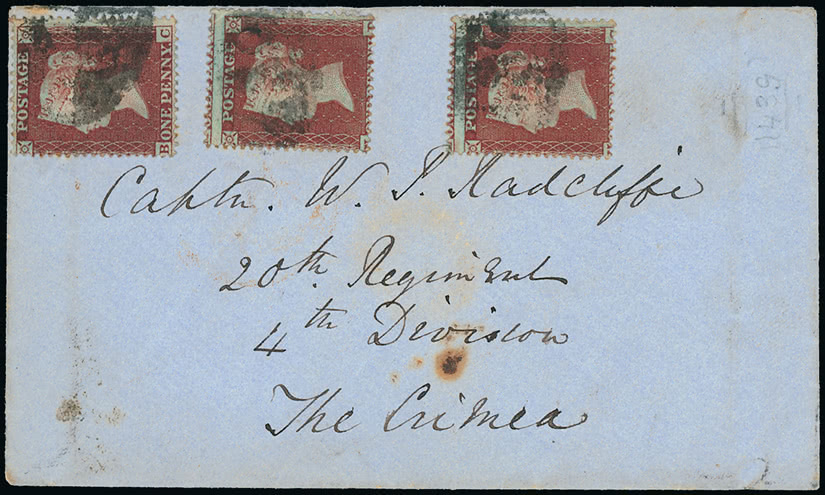 POSTAGE
ONE PENNY
B C
POSTAGE
POSTAGE
1439
Captn. W. P. Radcliffe
20th Regiment
4th Division
The Crimea